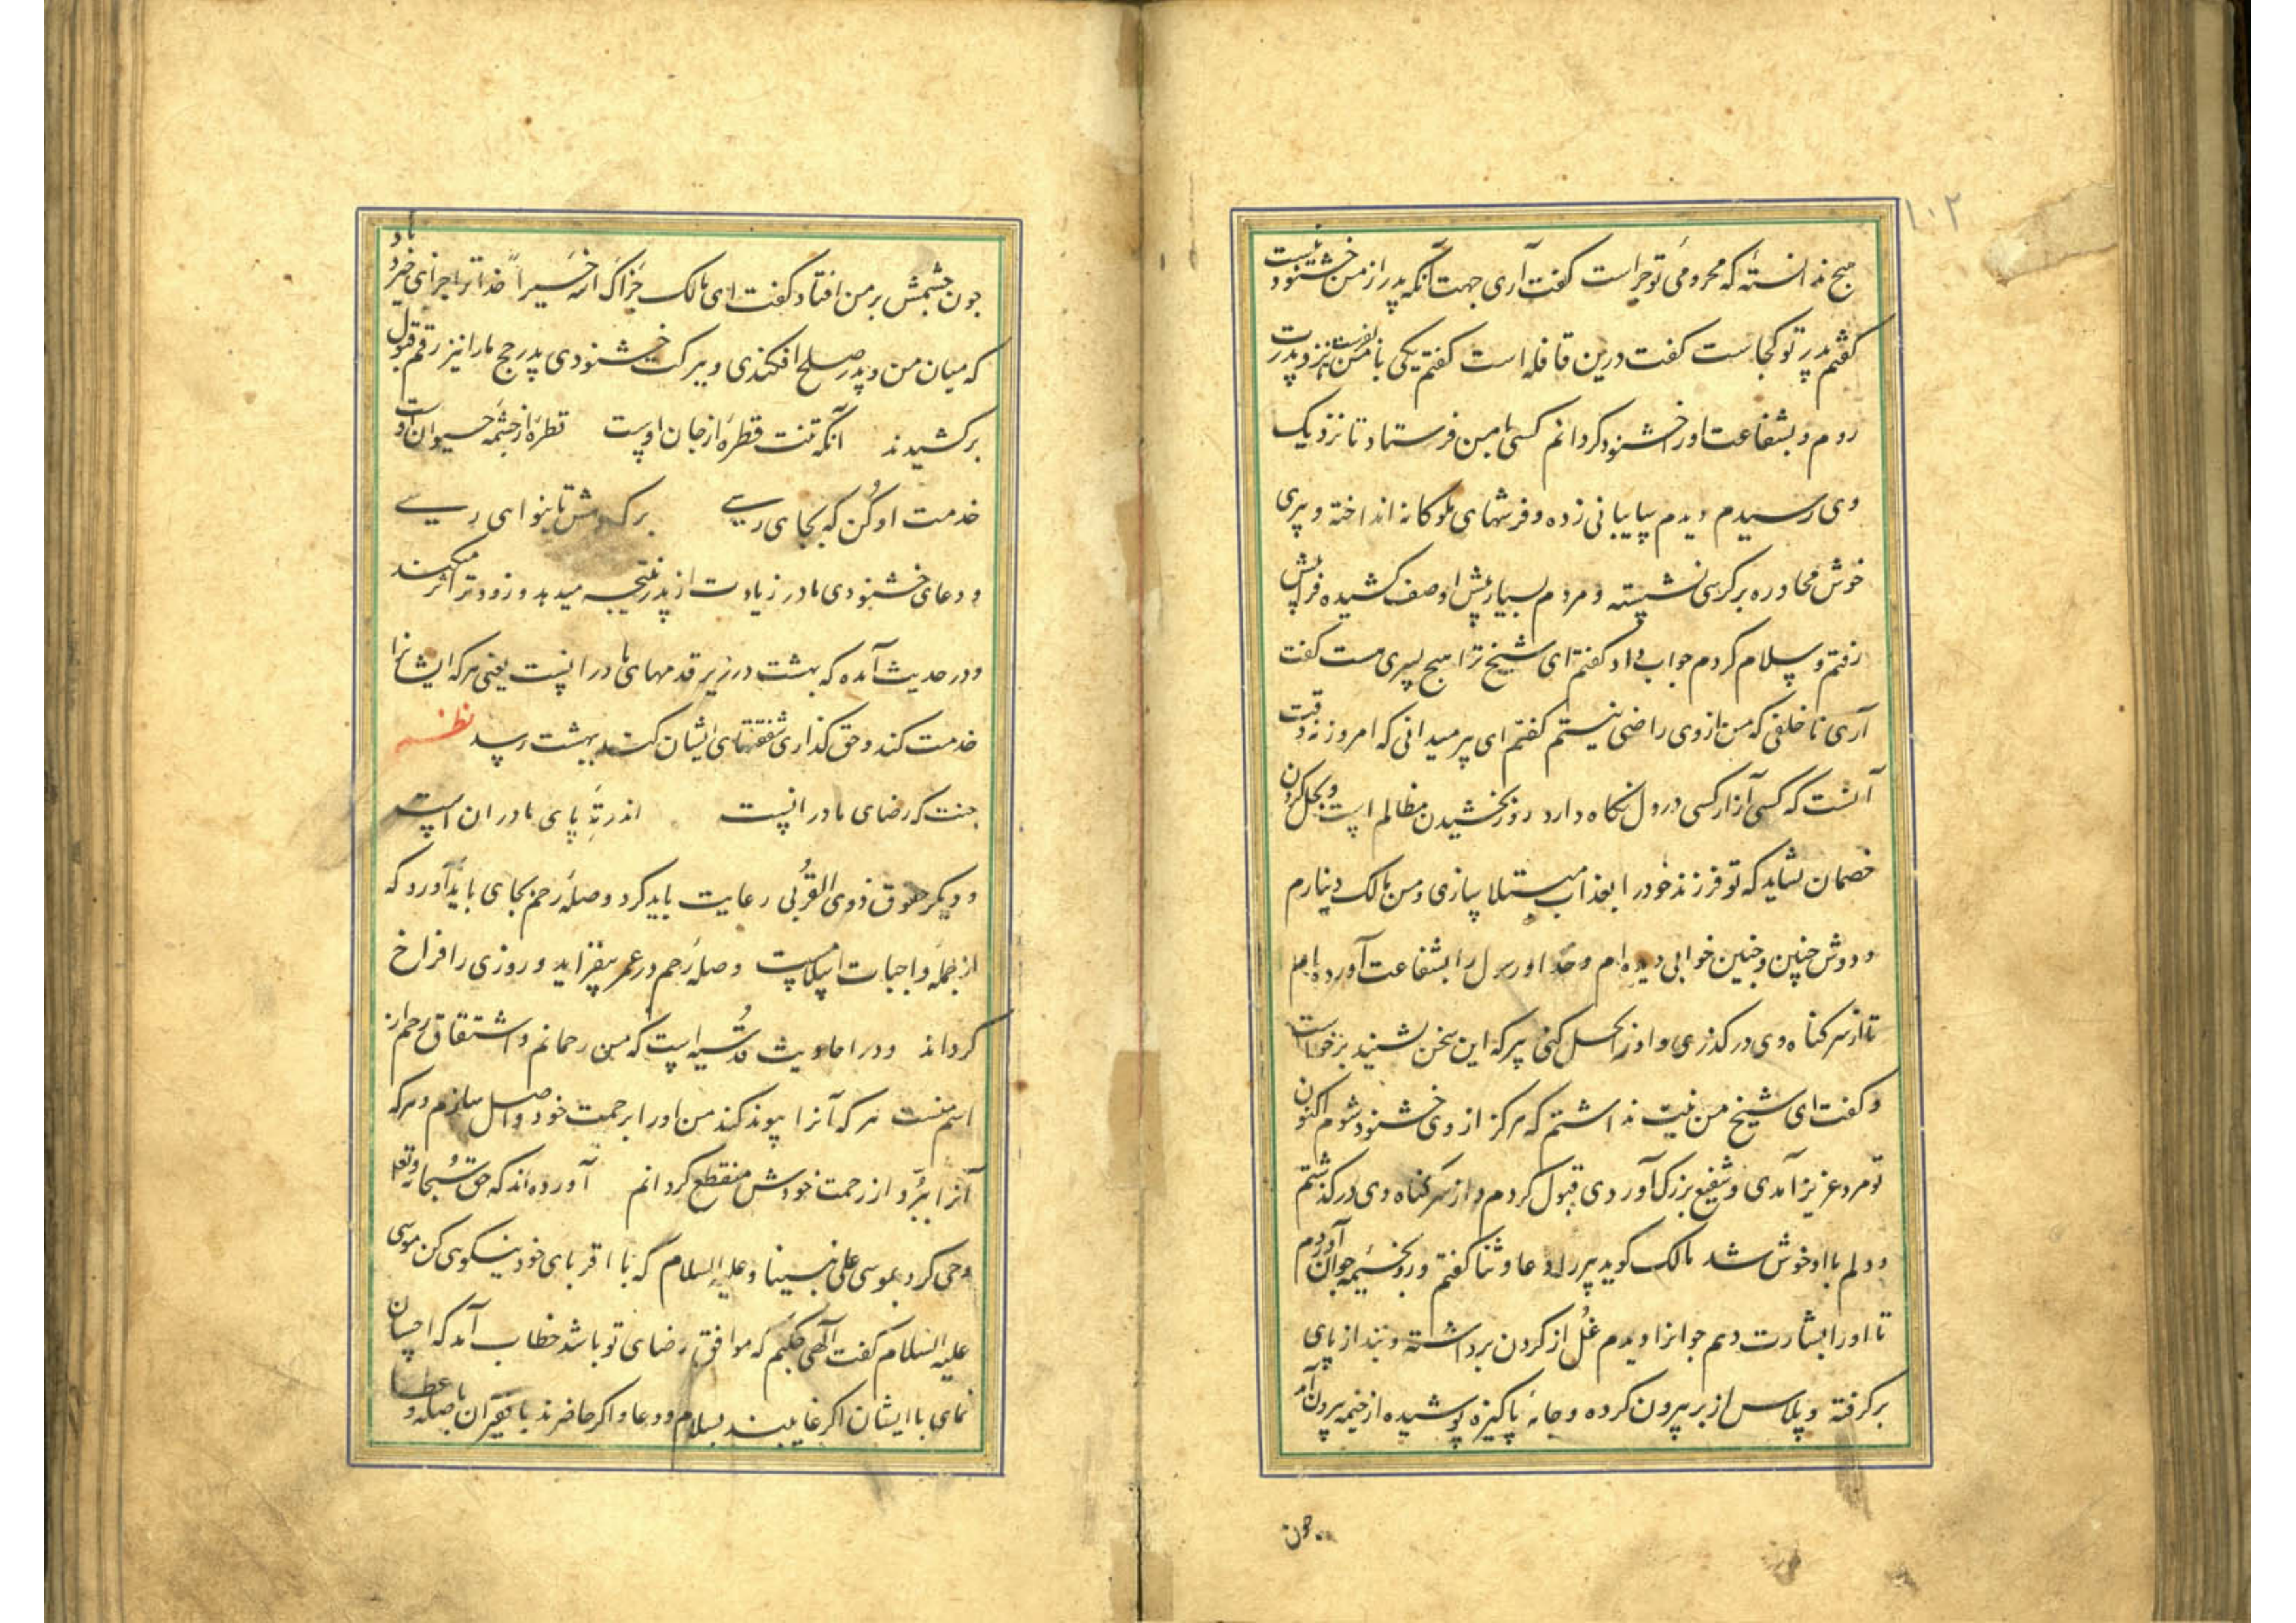 ۱۰۲
هیچ ندانستهٔ که محرومیٔ تو چراست گفت آری جهت آنکه پدر از من خشنود نیست
گفتم پدر تو کجاست گفت درین قافله است گفتم یکی با من بفرست تا نزد پدرت
روم و بشفاعت او را خشنود گردانم کسی با من فرستاد تا نزدیک
وی رسیدم دیدم سایبانی زده و فرشهای ملوکانه انداخته و پیری
خوش محاوره بر کرسی نشسته و مردم بسیار پیش او صف کشیده فرا پیش
رفتم و سلام کردم جواب داد گفتم ای شیخ ترا هیچ پسری هست گفت
آری ناخلفی که من از وی راضی نیستم گفتم ای پیر میدانی که امروز نه وقت
آنست که کسی آزار کسی در دل نگاه دارد روز بخشیدن مظالم است و بحل کردن
خصمان نشاید که تو فرزند خود را بعذاب مبتلا سازی و من مالک دینارم
و دوش چنین و چنین خوابی دیده‌ام و خدا و رسول را بشفاعت آورده‌ام
تا از سر کناه وی درگذری و او را بحل کنی پیر که این سخن بشنید برخواست
و گفت ای شیخ من نیت نداشتم که هرگز از وی خشنود شوم اکنون
تو مرد عزیز آمدی و شفیع بزرگ آوردی قبول کردم و از سر کناه وی درگذشتم
و دلم با او خوش شد مالک گوید پیر را دعا و ثنا گفتم و رو بخیمه جوان آوردم
تا او را بشارت دهم جوانرا دیدم غُل از گردن برداشته و بند از پای
برگرفته و پلاس از بر بیرون کرده و جامهٔ پاکیزه پوشیده از خیمه بیرون آمد
چون
چون چشمش بر من افتاد گفت ای مالک جزاک الله خیراً خدا ترا جزای خیر دهاد
که میان من و پدر صلح افکندی و ببرکت خشنودی پدر حج ما را نیز رقم قبول
برکشیدند آنکه تنت قطرهٔ از جان اوست قطرهٔ از چشمهٔ حیوان اوست
خدمت او کن که بجای رسی برکه و مش تا بنوای رسی
و دعای خشنودی مادر زیادت از پدر نتیجه میدهد و زودتر اثر میکند
و در حدیث آمده که بهشت در زیر قدمهای مادرانست یعنی هر که ایشانرا
خدمت کند و حق گذاری شفقتهای ایشان کند بهشت رسد نظم
جنت که رضای مادرانست اندر تهٔ پای مادران است
و دیگر حقوق ذوی القُربی رعایت باید کرد و صلهٔ رحم بجای باید آورد که
از جملهٔ واجبات اسلامست و صلهٔ رحم در عمر بیفزاید و روزی را فراخ
گرداند و در احادیث قُدسیه است که من رحمانم و اشتقاق رحم از
اسم منست هر که آنرا پیوند کند من او را برحمت خود واصل سازم و هر که
آنرا ببرّد از رحمت خودش منقطع گردانم آورده‌اند که حق سُبحانه و تعالی
وحی کرد بموسی علی نبینا و علیه السلام که با اقربای خود نیکویی کن موسی
علیه السلام گفت الهی چکنم که موافق رضای تو باشد خطاب آمد که احسان
نمای با ایشان اگر غایبند بسلام و دعا و اگر حاضرند با فقیران بصله و عطا